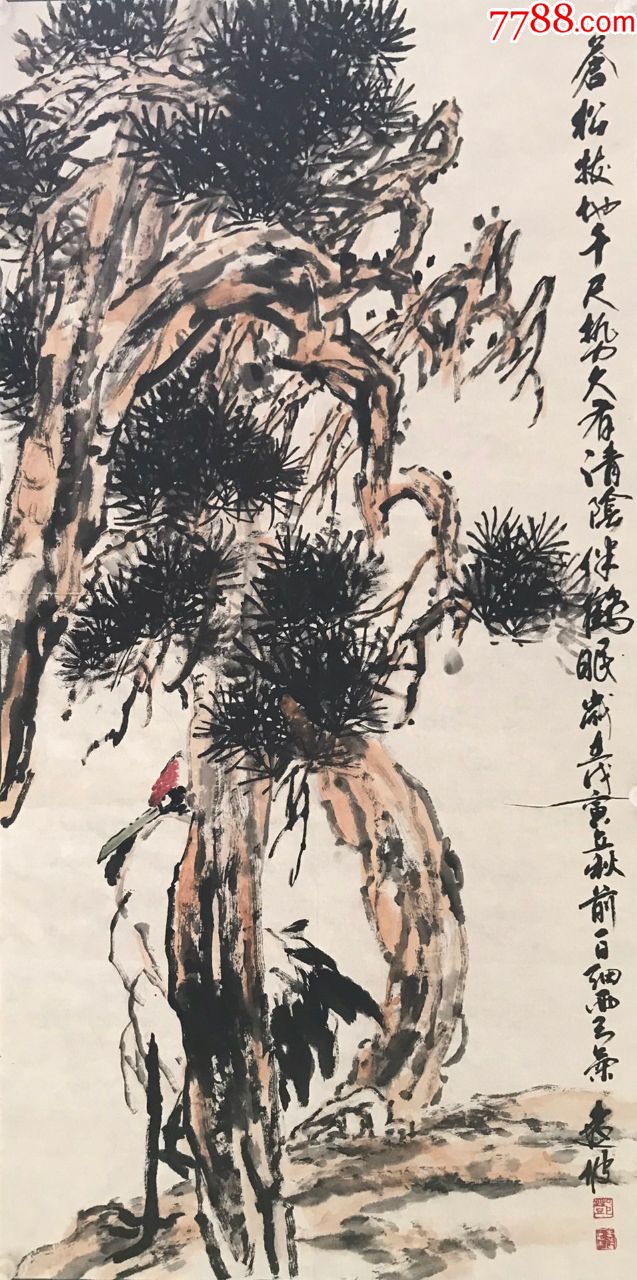 7788.com
蒼松拔地千尺势久有清陰伴鶴眠歲在戊寅立秋前一日細雨天氣